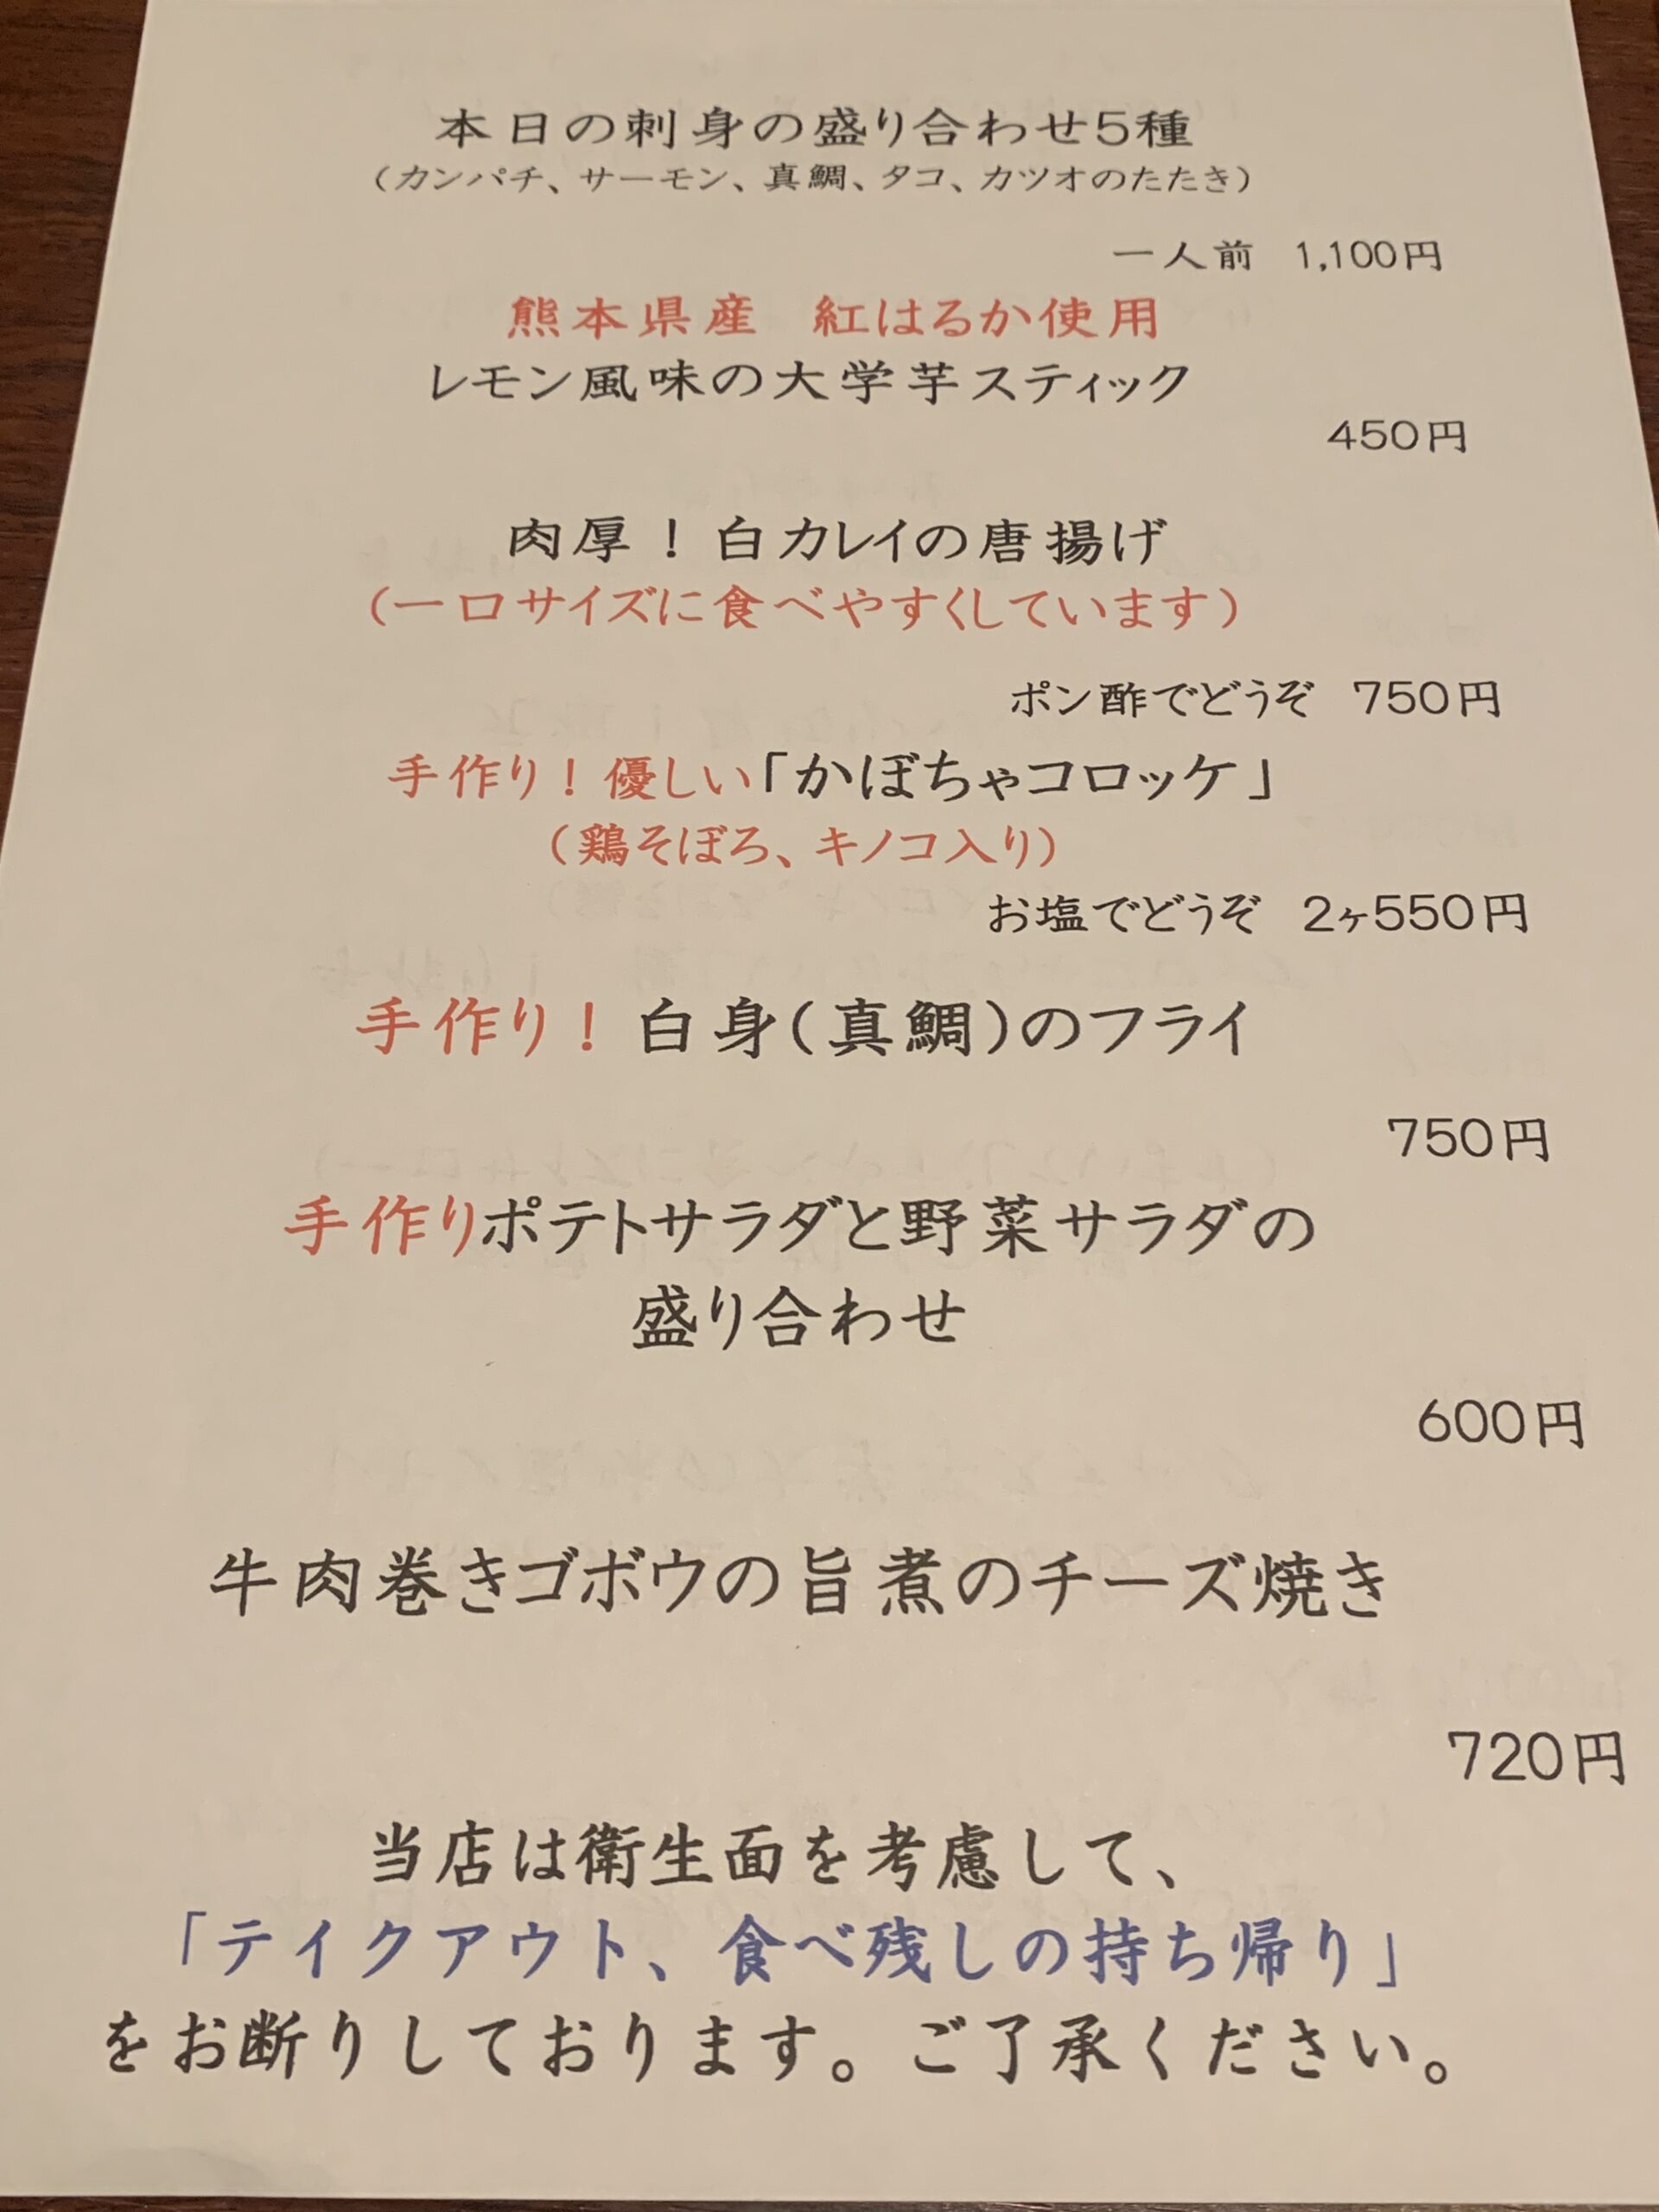 本日の刺身の盛り合わせ5種
（カンパチ、サーモン、真鯛、タコ、カツオのたたき）
一人前　1,100円
熊本県産　紅はるか使用
レモン風味の大学芋スティック
450円
肉厚！白カレイの唐揚げ
（一口サイズに食べやすくしています）
ポン酢でどうぞ　750円
手作り！優しい「かぼちゃコロッケ」
（鶏そぼろ、キノコ入り）
お塩でどうぞ　2ヶ550円
手作り！白身（真鯛）のフライ
750円
手作りポテトサラダと野菜サラダの
盛り合わせ
600円
牛肉巻きゴボウの旨煮のチーズ焼き
720円
当店は衛生面を考慮して、
「テイクアウト、食べ残しの持ち帰り」
をお断りしております。ご了承ください。